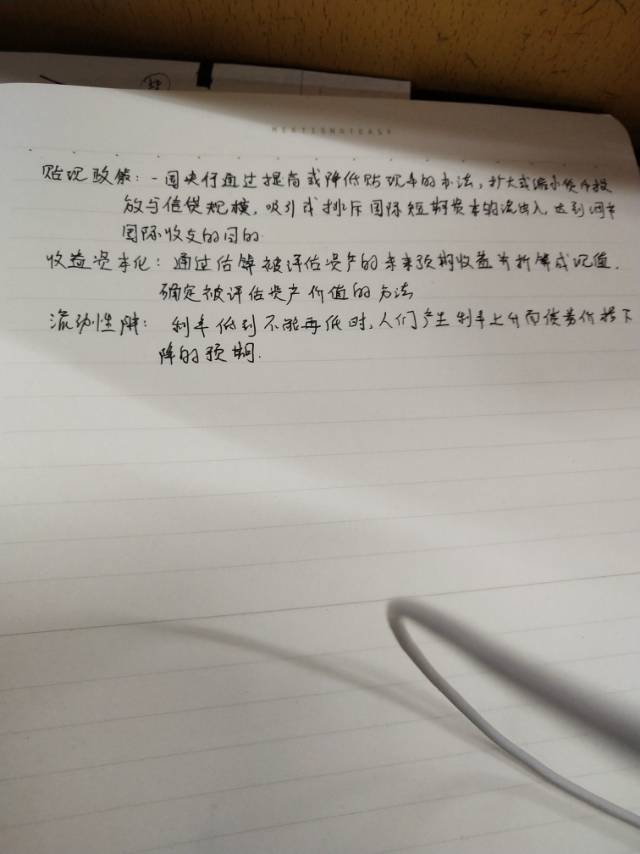 58
NEXTISNOTEASY
贴现政策：一国央行通过提高或降低贴现率的办法，扩大或缩小货币投
放与信贷规模，吸引或排斥国际短期资本的流出入，达到调节
国际收支的目的
收益资本化：通过估算被评估资产的未来预期收益并折算成现值，
确定被评估资产价值的方法
流动性陷：利率低到不能再低时，人们产生利率上升而债券价格下
降的预期.